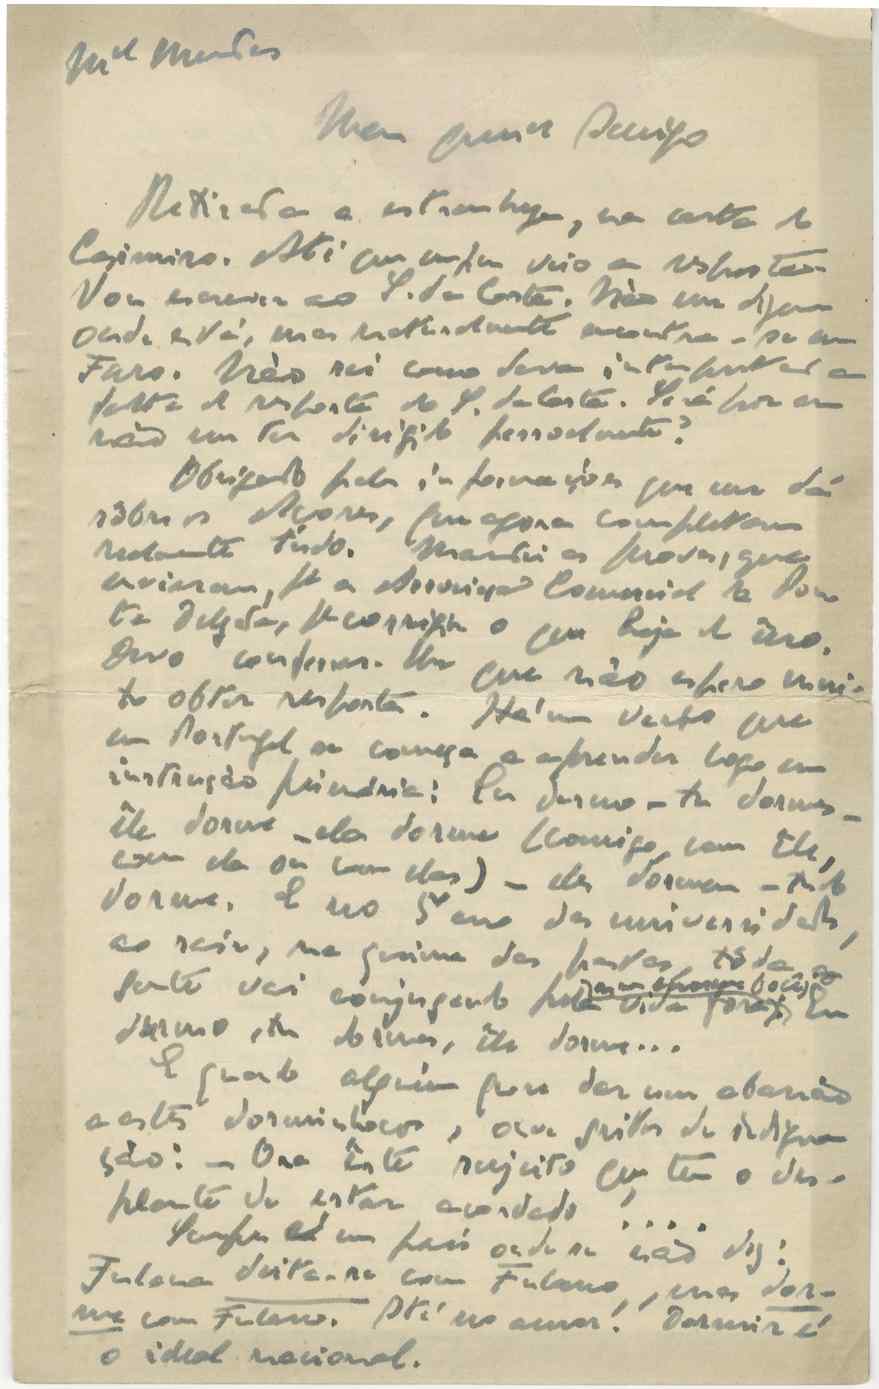 Mel Mendes
Meu querido Amigo
Retirada a estrambega, na carta do
Casimiro. Até que enfim veio a resposta.
Vou escrever ao S. da Costa. Não me dizem
onde está, mas naturalmente encontra-se em
Faro. Não sei como deva interpretar a
falta de resposta do S. da Costa. Será por eu
não me ter dirigido pessoalmente?
Obrigado pelas informações que me dá
sôbre os Açores, que agora completam
realmente tudo. Mandei as provas, que
enviaram, pª a Associação Comercial de Pon
ta Delgada, pª corrigir o que haja de êrro.
Devo confessar-lhe que não espero mui-
to obter resposta. Há um verbo que
em Portugal se começa a aprender logo em
instrução primária: Eu durmo – tu dormes –
êle dorme – ela dorme (comigo, com êle,
com ela ou com elas) – eles dormem – tudo
dorme. E no 5º ano das universidades,
ao sair, na queima das pastas, tôda a
gente vai conjugando pela vida fora, Eu
durmo, tu dormes, êle dorme...
E quando alguém quere dar um abanão
a estes dorminhocos, ouve gritos de indigna
ção: – Ora êste sujeito que tem o des-
plante de estar acordado! ...
Sempre é um país onde se não diz:
Fulana deita-se com Fulano, mas dor-
me com Fulano. Até no amor! Dormir é
o ideal nacional.